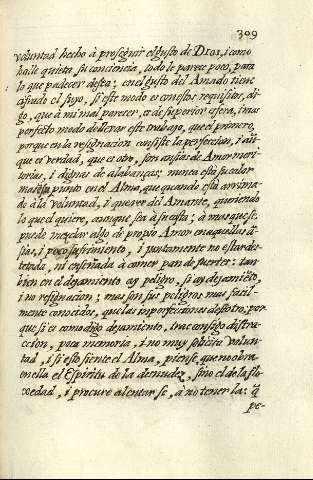 309
voluntad hecho à proseguir el gusto de DIOS, i como
halle quieta su conciencia, todo le parece poco, para
lo que padecer desea; en el gusto del Amado tiene
cifrado el suyo, si este modo es con estos requisitos, di-
go, que à mi mal parecer, es de superior esfera, i mas
perfecto modo de llevar este trabajo, que el primero,
porque en la resignacion consiste la perfeccion, i aũ-
que es verdad, que es otro, son ansias de Amor meri-
torias, i dignas de alabanças; nunca està su calor
mas en su punto en el Alma, que quando està arrima-
do à la voluntad, i querer del Amante, queriendo
lo que el quiere, aunque sea à su costa; à mas que se
puede mezclar algo de propio Amor en aquellas ã-
sias, i poco sufrimiento, i juntamente no estar des-
tetada, ni enseñada à comer pan de fuertes: tan-
bien en el dejamiento ay peligro, si ay dejamiẽto,
i no resignacion; mas son sus peligros mas facil-
mente conocidos, que las imperfecciones de estotro; por-
que si es como digo dejamiento, trae consigo distra-
ccion, poca memoria, i no muy solicita volun-
tad, i si esto siente el Alma, piense que no obra
en ella el Espiritu de la desnudez, sino el de la flo-
xedad, i procure alentarse, à no tener la: q̃
pe-